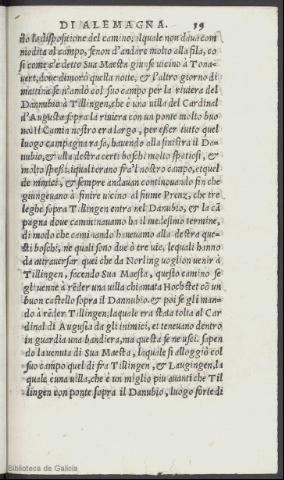 DI ALEMAGNA. 59
to la dispositione del camino, alquale non daua com
modita al campo, se non d'andare molto alla fila, co
si come è detto Sua Maesta giunse vicino à Tona-
uert, doue dimorò quella notte, & l'altro giorno di
mattina se n'andò col suo campo per la riuiera del
Dannubio à Tillingen, che è una uilla del Cardinal
d'Augusta sopra la riuiera con un ponte molto buo
no: Il Camin nostro era largo, per esser tutto quel
luogo campagna rasa, hauendo alla sinistra il Da-
nubio, & alla destra certi boschi molto spatiosi, &
molto spessi, i quali erano fra'l nostro campo, et quel
de nimici, & sempre andauan continuando fin che
giungeuano à finire vicino al fiume Prenz, che tre
leghe sopra Tillingen entra nel Danubio, & la cā
pagna doue caminauamo ha il medesimo termine,
di modo che caminando haueuamo alla destra que-
sti boschi, ne quali sono due ò tre vie, le quali hanno
da attrauersar quei che da Norling uoglion uenir à
Tillingen, facendo Sua Maesta, questo camino se
gli uenne à rēder una uilla chiamata Hochstet cō un
buon castello sopra il Dannubio. & poi se gli man-
dò à rēder Tillingen, laquale era stata tolta al Car
dinal di Augusta da gli inimici, et teneuano dentro
in guardia una bandiera, ma questa se ne uscì. sapen
do la uenuta di Sua Maesta, laquale si alloggiò col
suo campo quel dì fra Tillingen, & Laugingen, la
quale è una uilla, che è un miglio piu auanti che Til
lingen con ponte sopra il Danubio, luogo forte di
Biblioteca de Galicia